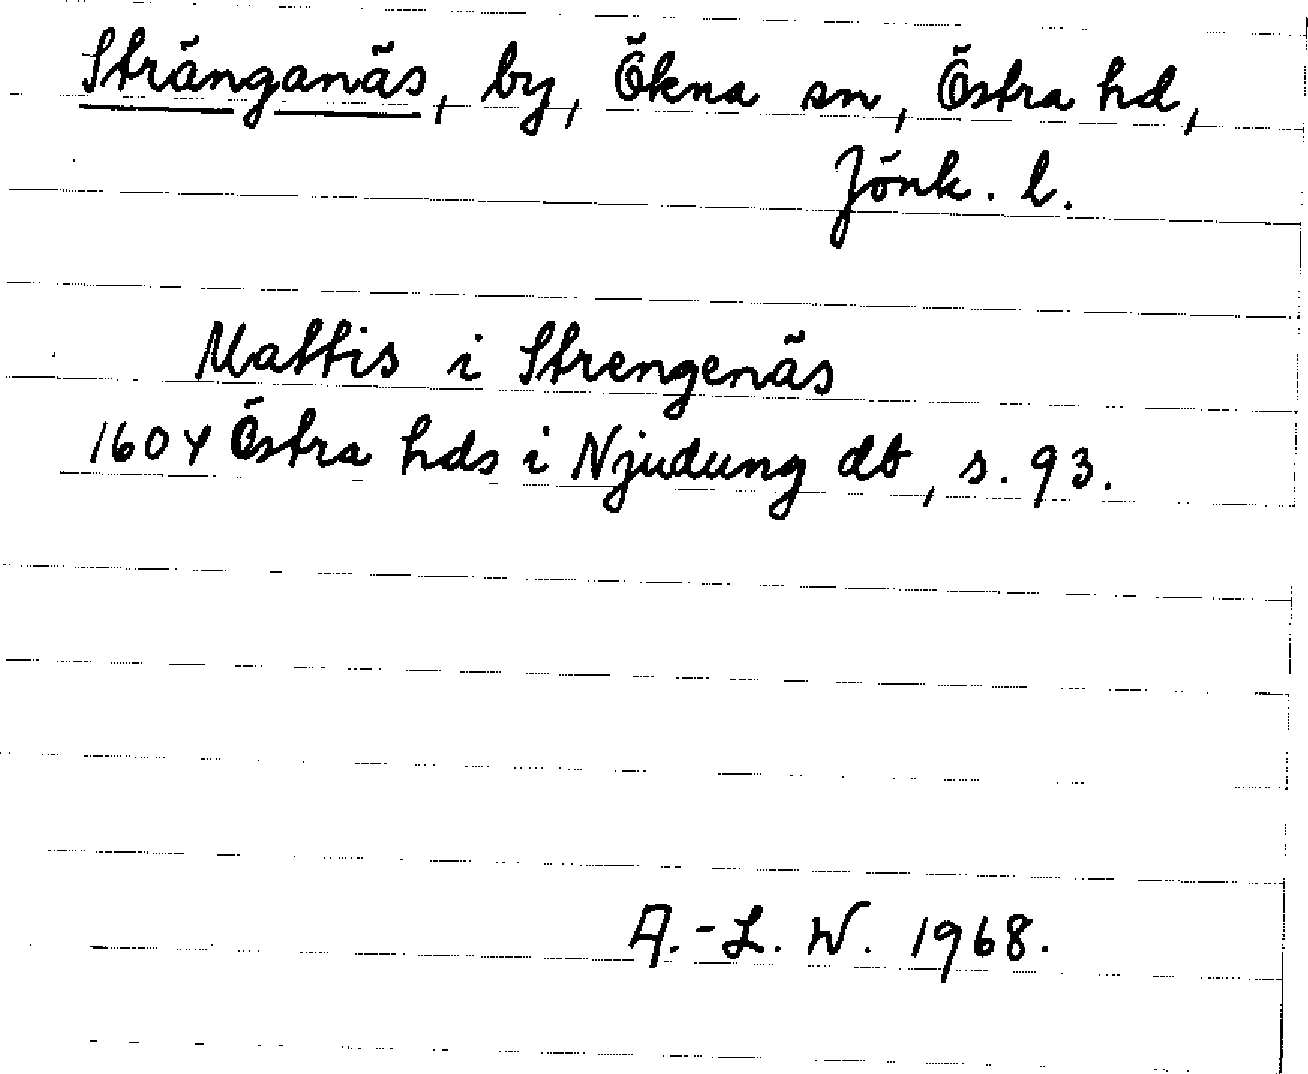 Stränganäs, by, Ökna sn, Östra hd,
Jönk. l.
Mattis i Strengenäs
1604 Östra hds i Njudung db, s. 93.
A.-L. W. 1968.